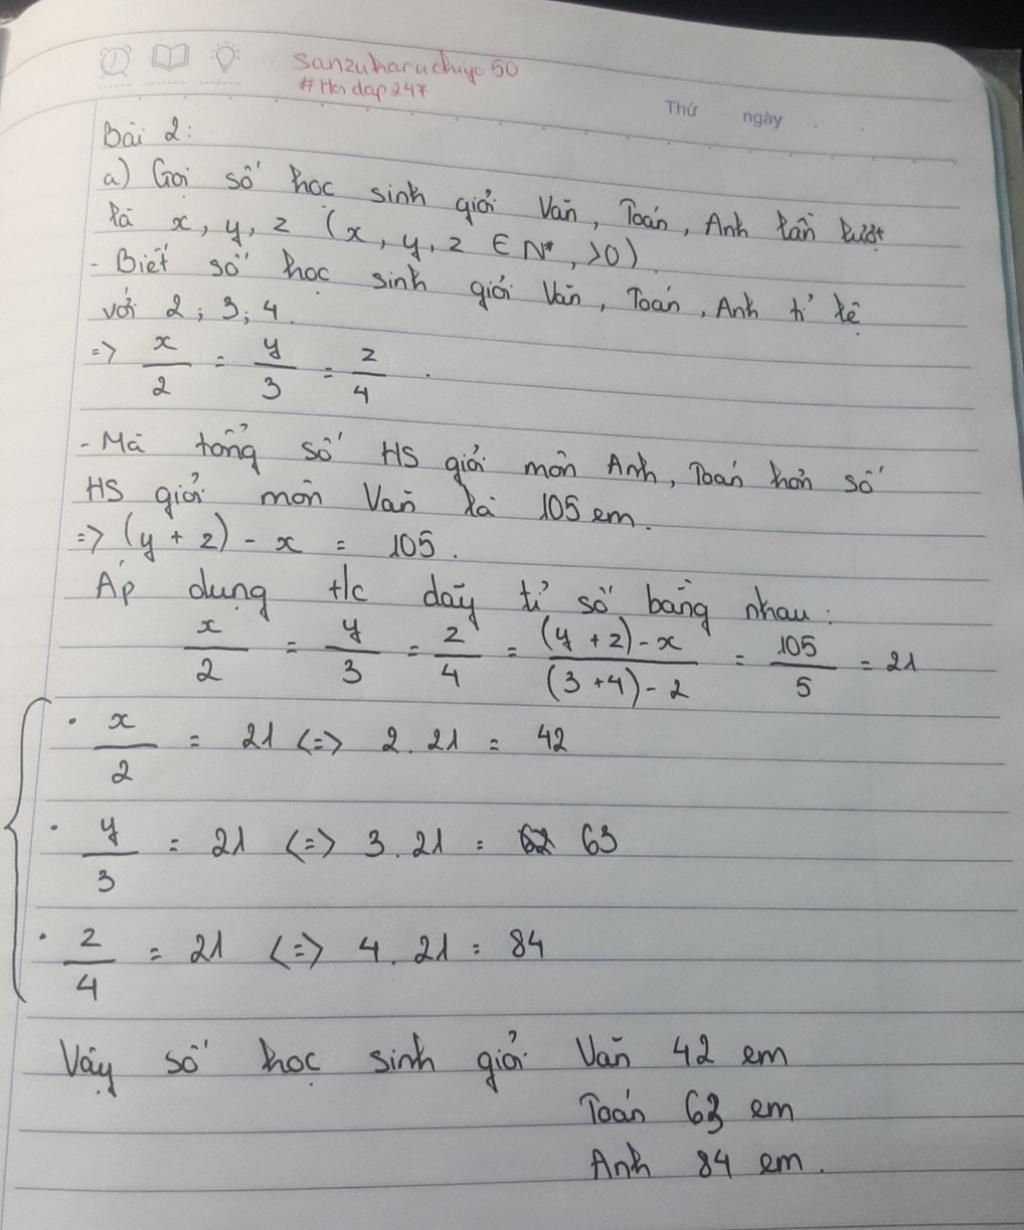 Sanzuharuchiyo50
#Hoidap247
Thứ ngày
Bài 2:
a) Gọi số học sinh giỏi Văn, Toán, Anh lần lượt
là x, y, z (x, y, z ∈ N*, >0).
- Biết số học sinh giỏi Văn, Toán, Anh tỉ lệ
với 2; 3; 4.
=> x/2 = y/3 = z/4.
- Mà tổng số HS giỏi môn Anh, Toán hơn số
HS giỏi môn Văn là 105 em.
=> (y + z) - x = 105.
Áp dụng t/c dãy tỉ số bằng nhau:
x/2 = y/3 = z/4 = (y + z) - x/(3 + 4) - 2 = 105/5 = 21
• x/2 = 21 <=> 2.21 = 42
• y/3 = 21 <=> 3.21 = 63
• z/4 = 21 <=> 4.21 = 84
Vậy số học sinh giỏi Văn 42 em
Toán 63 em
Anh 84 em.